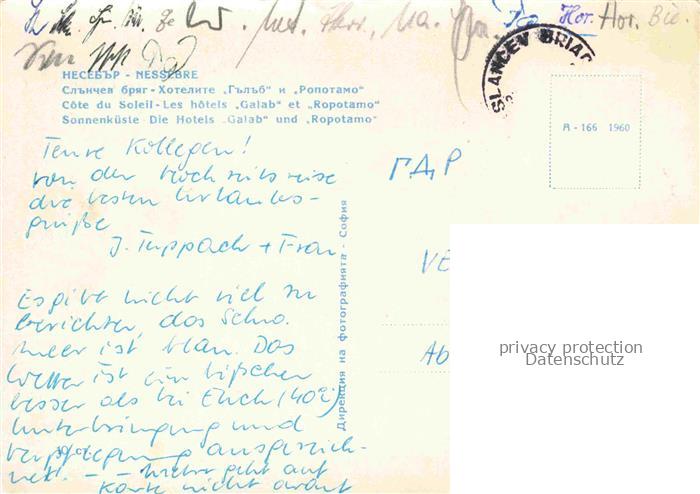 Hor. Hor. Bie.
НЕСЕБЪР - NESSÈBRE
Слънчев бряг - Хотелите „Гълъб“ и „Ропотамо“
Côte du Soleil - Les hôtels „Galab“ et „Ropotamo“
Sonnenküste - Die Hotels „Galab“ und „Ropotamo“
SLANCEV BRIAG
A - 166 1960
Teure Kollegen!
von der Hochzeitsreise
die besten Urlaubs-
grüße
J. Tuppach + Frau
Es gibt nicht viel zu
berichten, das Schw.
Meer ist blau. Das
Wetter ist ein bißchen
besser als bei Euch (40°)
Unterbringung und
Verpflegung ausgezeich-
net. - - Mehr geht auf
Karte nicht drauf
Дирекция на фотографията - София
ГДР
VE
Ab
privacy protection
Datenschutz